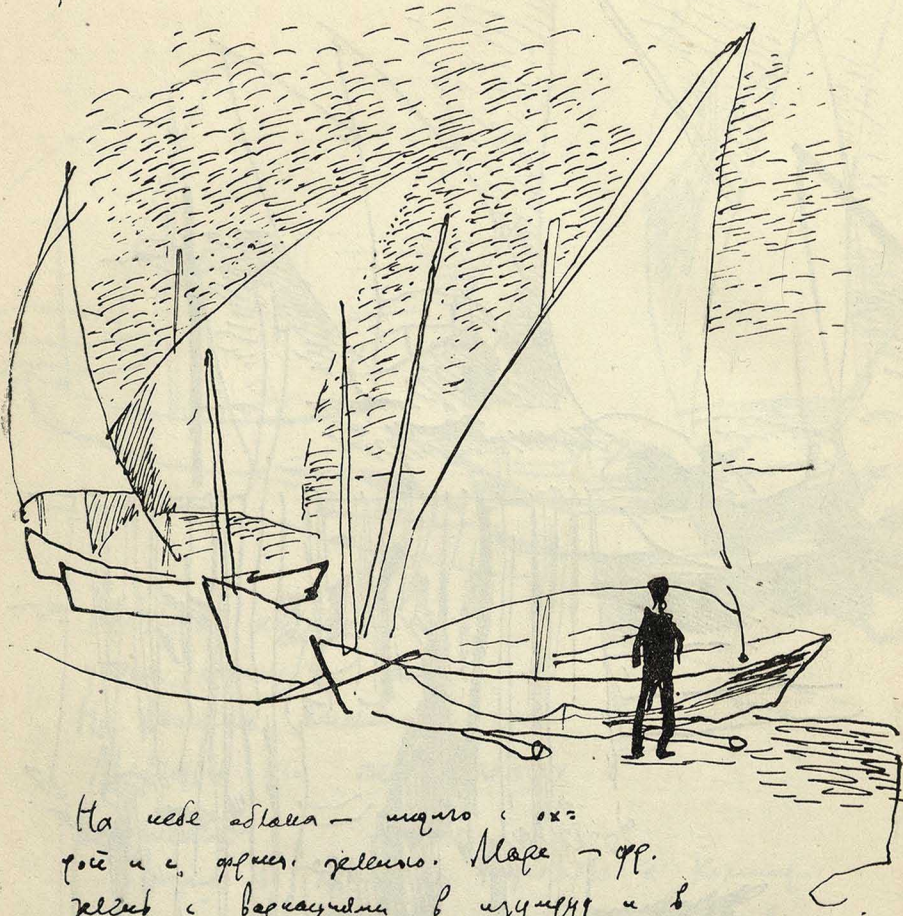 На небе облака — индиго с ох=
рой и с франц. зеленью. Море — фр.
зелень с вариациями в изумруд и в